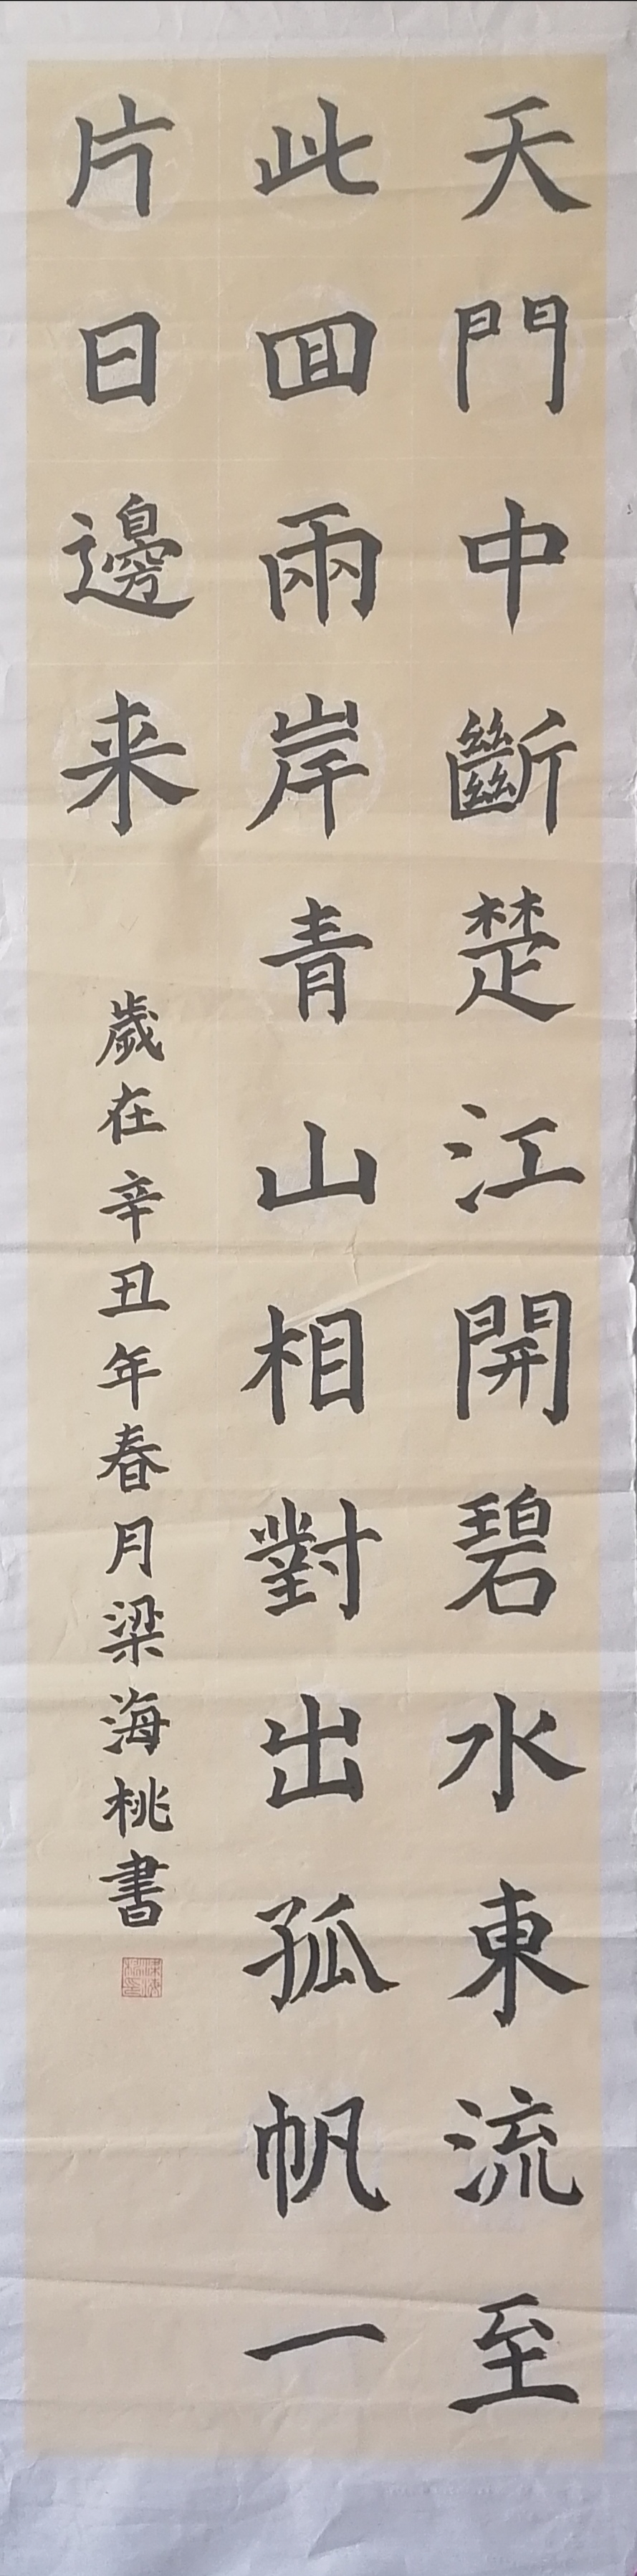 天門中斷楚江開碧水東流至
此回兩岸青山相對出孤帆一
片日邊来
歲在辛丑年春月梁海桃書